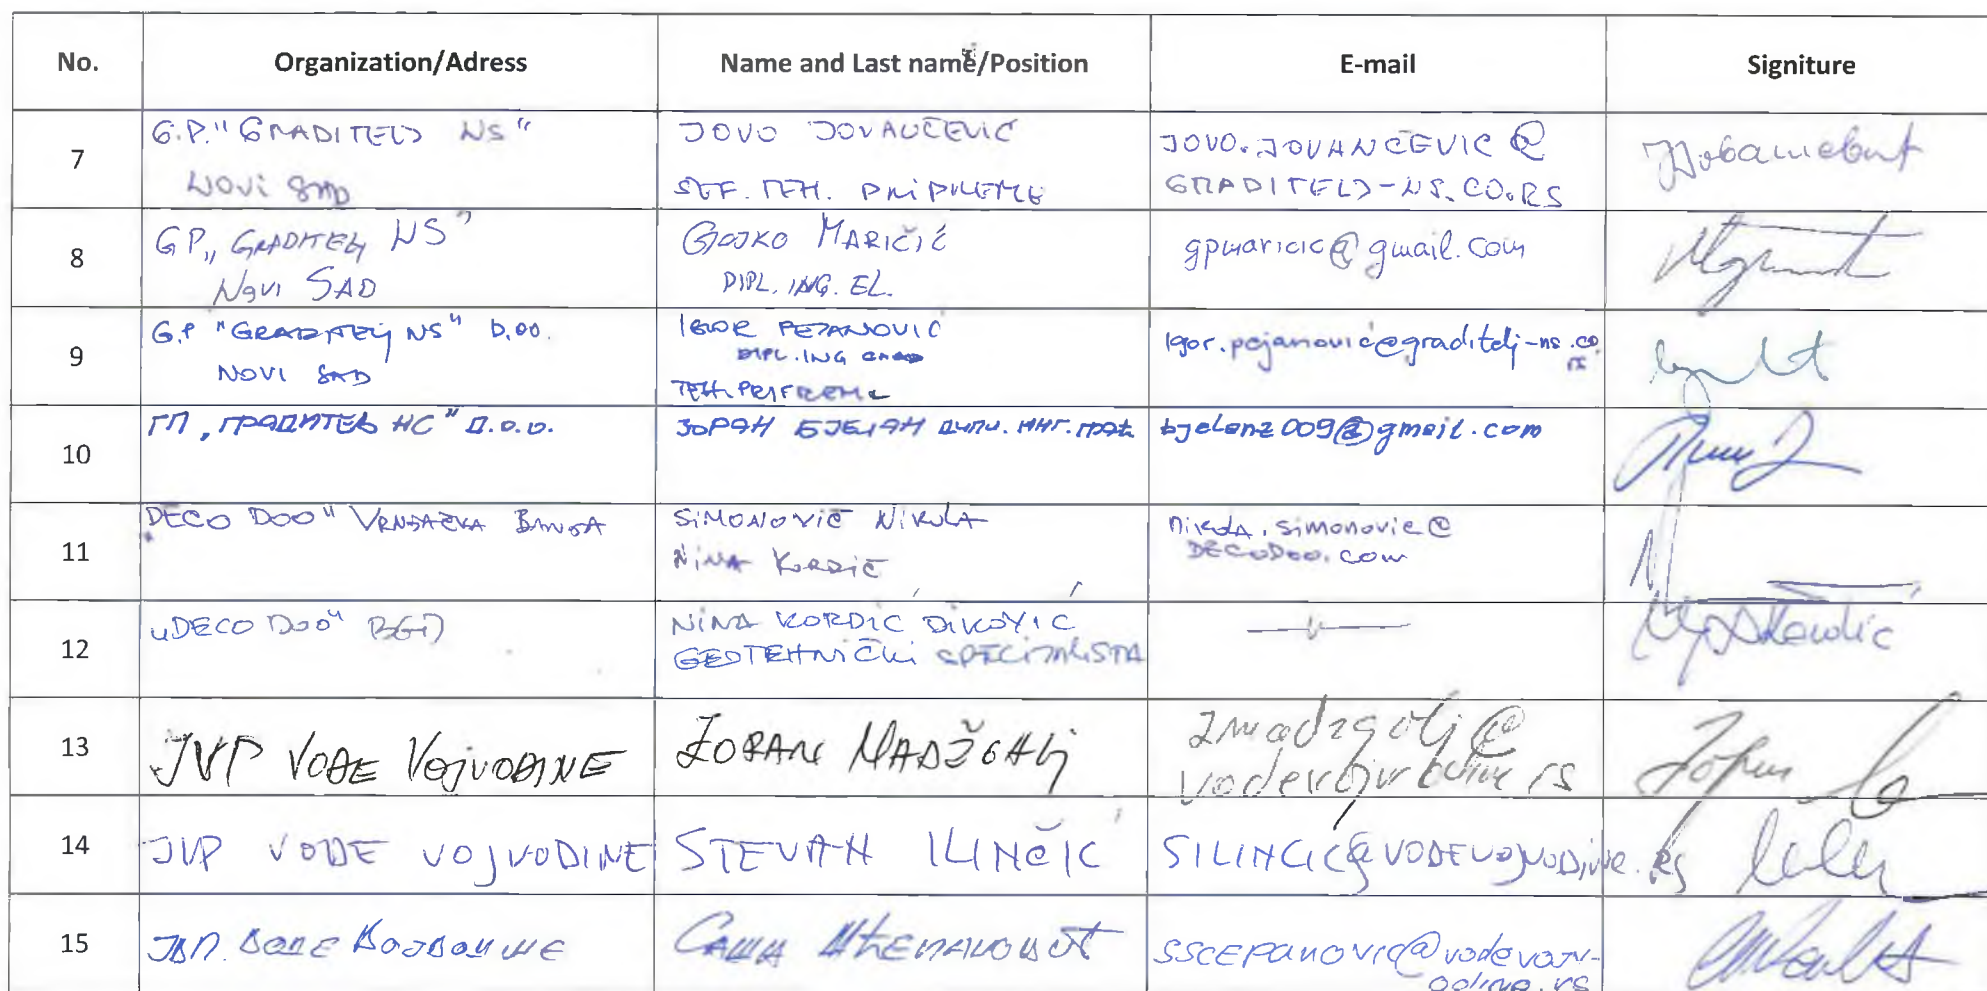 No. Organization/Adress Name and Last name/Position E-mail Signiture
7
G.P. "GRADITELJ NS"
NOVI SAD
JOVO JOVANČEVIĆ
ŠEF. TEH. PRIPREME
JOVO.JOVANCEVIC@
GRADITELJ-NS.CO.RS
8
GP „GRADITELJ NS"
NOVI SAD
GOJKO MARIČIĆ
DIPL. ING. EL.
gpmaricic@gmail.com
9
G.P "GRADITELJ NS" D.OO.
NOVI SAD
IGOR PEJANOVIĆ
DIPL. ING GRAĐ
TEH. PRIPREMA
Igor.pejanovic@graditelj-ns.co
rs
10
ГП „ГРАДИТЕЉ НС" Д.О.О.
ЗОРАН БЈЕЛАН ДИПЛ. ИНГ. ГРАЂ
bjelanz009@gmail.com
11
"DECO DOO" VRNJAČKA BANJA
SIMONOVIĆ NIKOLA
NINA KORDIĆ
nikola.simonovic@
DECODOO.com
12
"DECO DOO" BGD
NINA KORDIĆ DIKOVIĆ
GEOTEHNIČKI SPECIJALISTA
—〃—
13
JVP VODE VOJVODINE
ZORAN MADŽGALJ
zmadzgalj@
vodevojvodine.rs
14
JVP VODE VOJVODINE
STEVAN ILINČIĆ
SILINCIC@VODEVOJVODINE.RS
15
ЈВП. ВОДЕ ВОЈВОДИНЕ
САША ШЋЕПАНОВИЋ
SSCEPANOVIC@vodevojv-
odina.rs